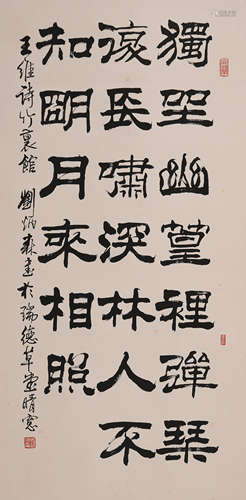 獨坐幽篁裡彈琴
復長嘯深林人不
知朙月來相照
王維詩竹裏館 劉炳森書於瑞德草堂晴窗